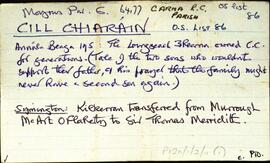 Magnus Par. E. 64,77 CARNA R.C. PARISH OS list 86
CILL CHIARÁIN O.S. LIST 86
Annála Beaga 195 The Loingseach Bhearna owned C.C.
for generations. (Tale of the two sons who wouldn't
support their father, & his prayer that the family might
never have a second son again)
Symington: Kilkerran transferred from Murrough
McArt O'Flaherty to Sir Thomas Merridith.
c. P.I.D.